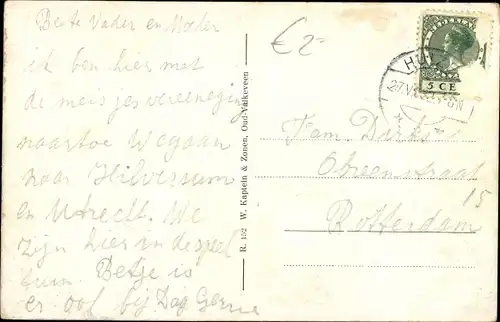 Beste Vader en Moeder
ik ben hier met
de meisjes vereeneging
naartoe We gaan
naar Hilversum
en Utrecht. We
zijn hier in de speel
tuin Betje is
er ook bij Dag Gerrie
€ 2-
R. 192 W. Kaptein & Zonen, Oud-Valkeveen
5 CE
27.V
Fam Dirks
straat
15
Rotterdam